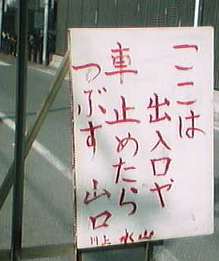 ここは
出入口や
車止めたら
つぶす 山口
川上 水山